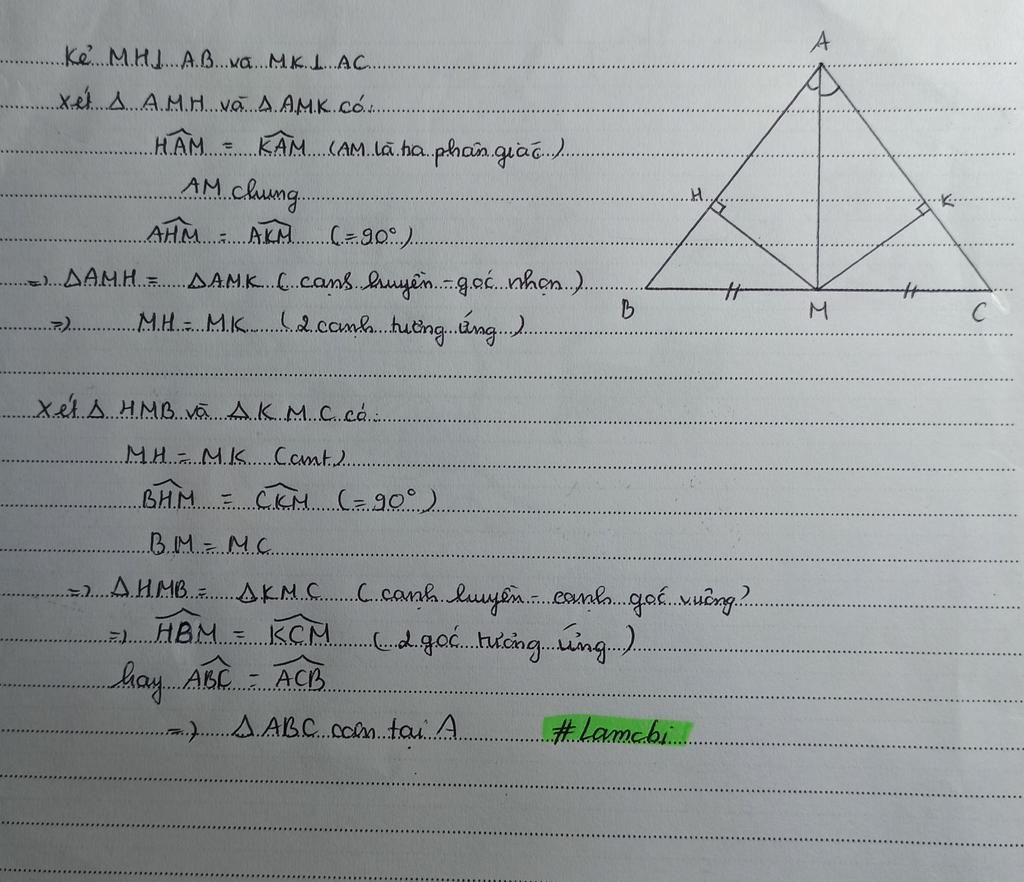 Kẻ MH⊥ AB và MK⊥ AC
Xét Δ AMH và Δ AMK có:
HAM = KAM (AM là tia phân giác)
AM chung
AHM = AKM (=90°)
=> ΔAMH = ΔAMK (cạnh huyền - góc nhọn)
=> MH = MK (2 cạnh tương ứng)
Xét Δ HMB và Δ KMC có:
MH = MK (cmt)
BHM = CKM (=90°)
BM = MC
=> ΔHMB = ΔKMC (cạnh huyền - cạnh góc vuông)
=> HBM = KCM (2 góc tương ứng)
hay ABC = ACB
=> ΔABC cân tại A
#Lamchi
A
H
K
B
M
C